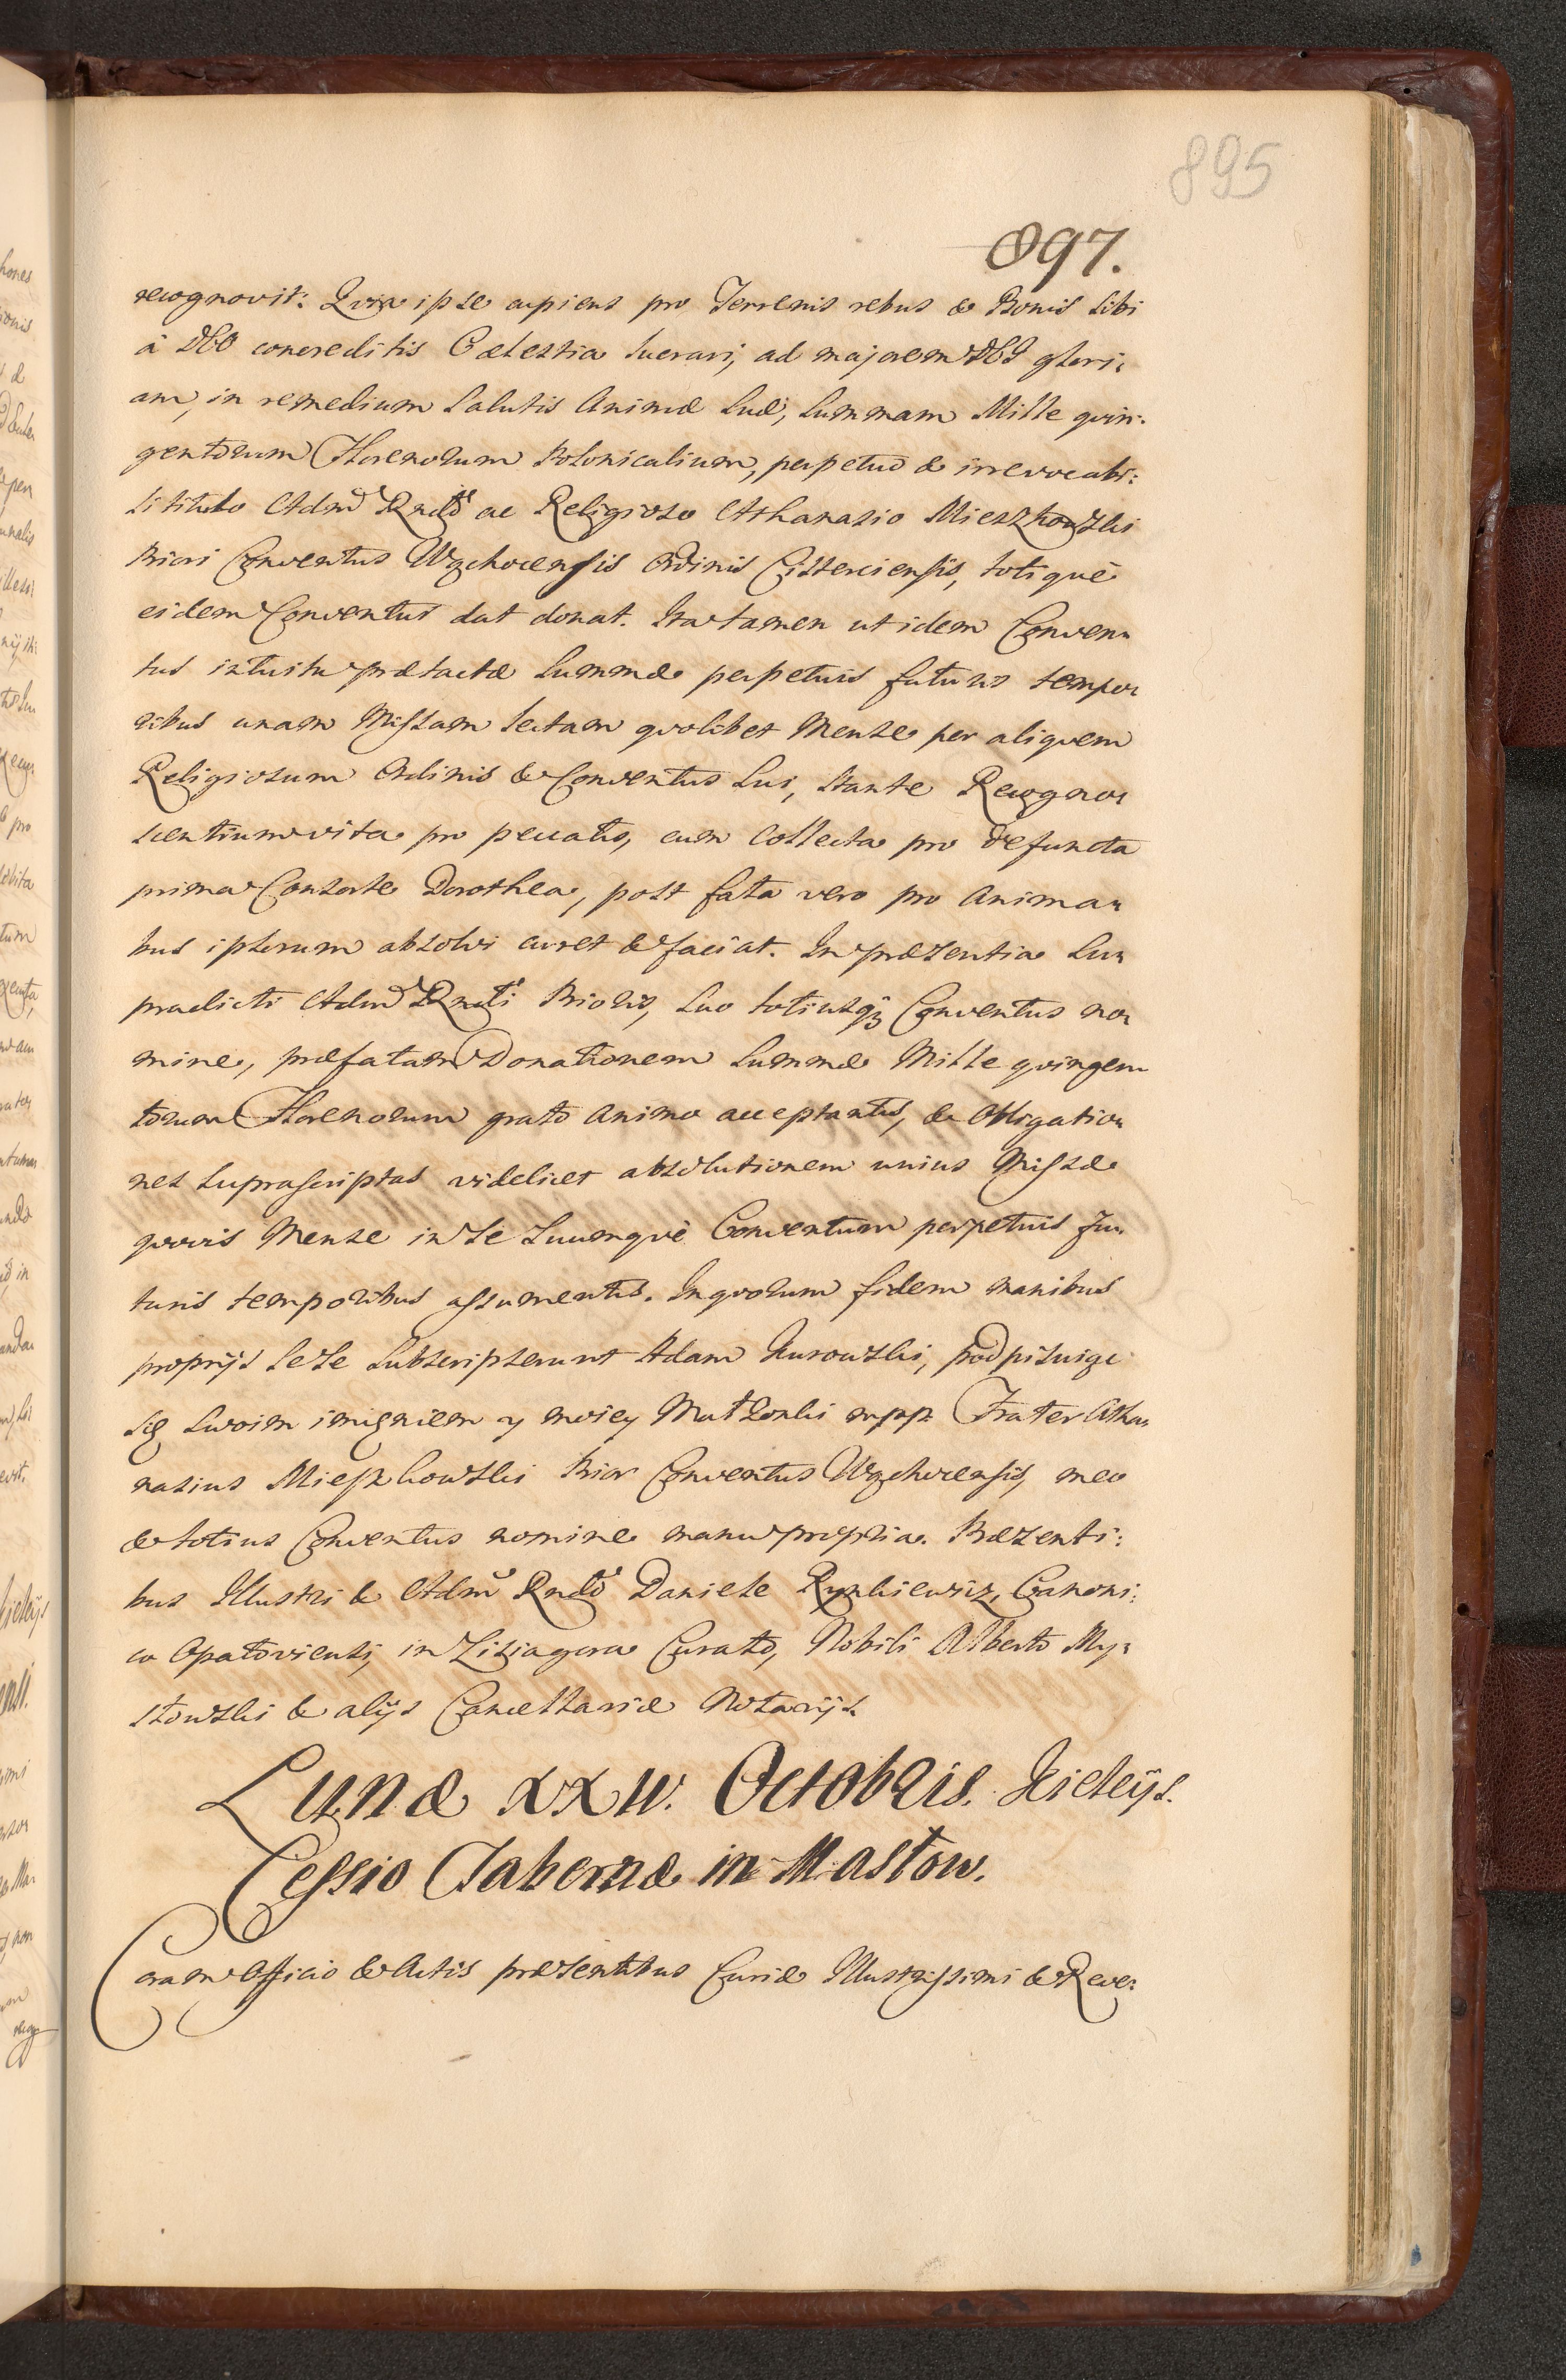 895
897.
recognovit: Quia ipse cupiens pro Terrenis rebus & Bonis sibi
à DEO concreditis Cælestia lucrari, ad majorem DEI glori:
am, in remedium Salutis Animæ suæ, summam Mille qvin:
gentorum Florenorum Polonicalium, perpetuo & irrevocabi:
li titulo Adm Rndo ac Religioso Athanasio Mieszkowski
Priori Conventus Wąchocensis Ordinis Cisterciensis, totiquè
eidem Conventui dat donat. Ita tamen ut idem Conven:
tus intuitu prætactæ summæ perpetuis futuris tempo:
ribus unam Missam lectam qvolibet Mense per aliqvem
Religiosum Ordinis & Conventus sui, stante Recogno:
scentium vita pro peccatis, cum Collecta pro defuncta
prima Consorte Dorothea, post fata vero pro anima:
bus ipsorum absolvi curet & faciat. In præsentia su:
pradicti Adm Rndi Prioris, suo totiusq; Conventus no:
mine, præfatam Donationem summæ Mille qvingen:
torum Florenorum grato animo acceptantis, & Obligatio:
nes suprascriptas videlicet absolutionem unius Missæ
qvovis Mense in se suumqvè Conventum perpetuis fu:
turis temporibus assumentis. In qvorum fidem manibus
proprijs sese subscripserunt Adam Kurowski, podpisuię
się swoim imięniem y moiey Małżonki mpp Frater Atha:
nasius Mieszkowski Prior Conventus Wąchocensis, meo
& totius Conventus nomine manu propria. Præsenti:
bus Illustri & Adm Rndo Daniele Rynkiewicz, Canoni:
co Opatoviensi, in Lisiagora Curato, Nobili Alberto My:
stowski & alijs Cancellariæ Notarijs.
Lunæ XXIV. Octobris. Kielcijs.
Cessio Tabernæ in Masłow.
Coram Officio & Actis præsentibus Curiæ Illustrissimi & Reve: